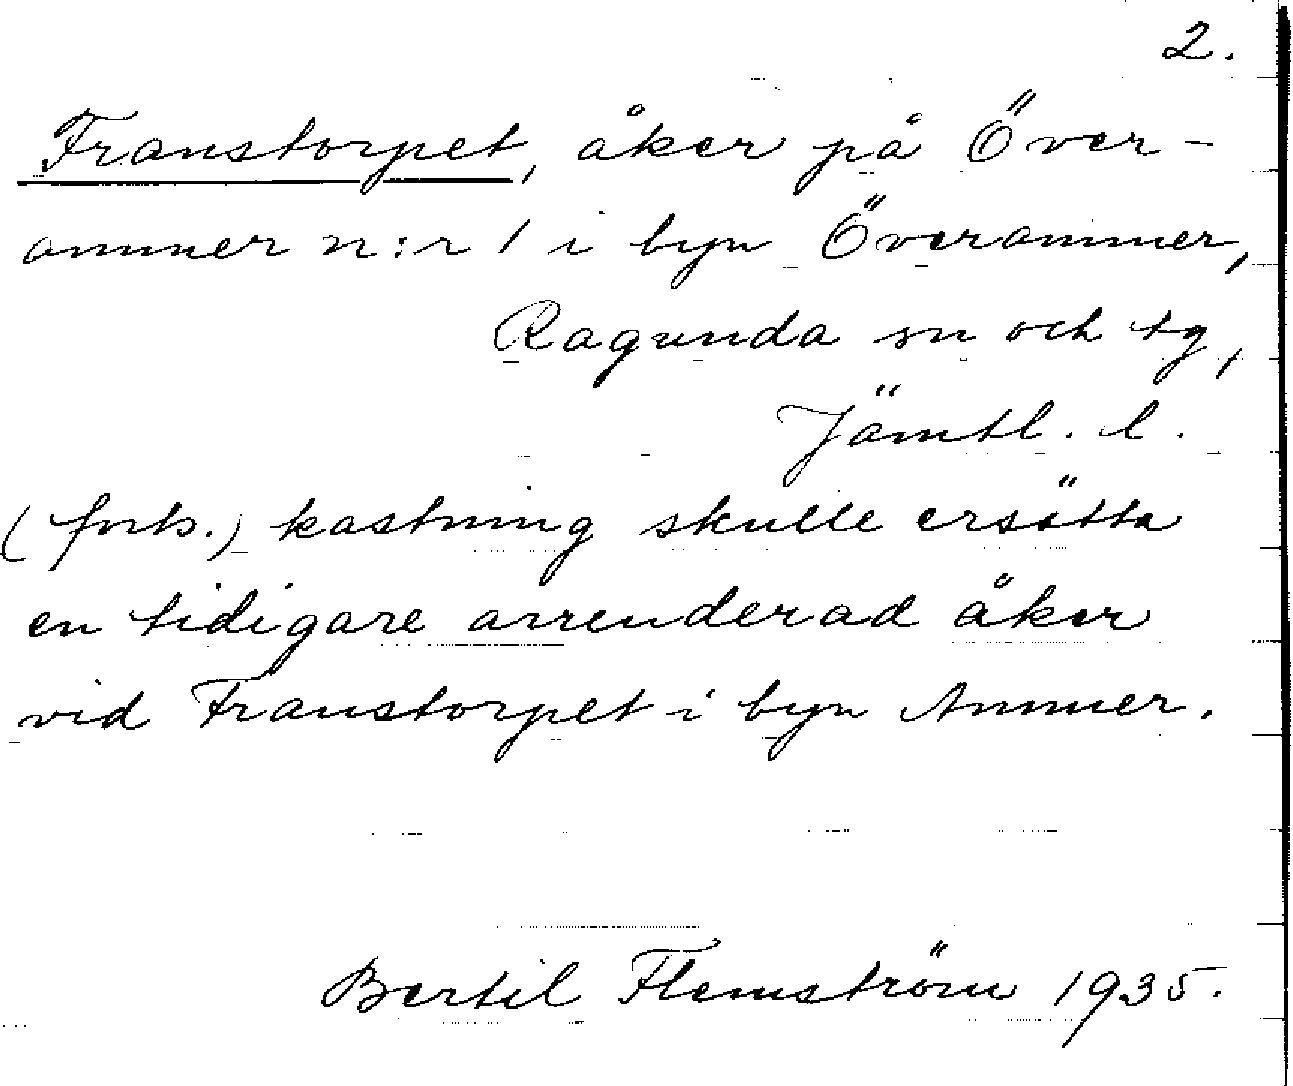 2.
Franstorpet, åker på Över-
ammer n:r 1 i byn Överammer,
Ragunda sn och tg,
Jämtl. l.
(forts.) kastning skulle ersätta
en tidigare arrenderad åker
vid Franstorpet i byn Ammer.
Bertil Flemström 1935.